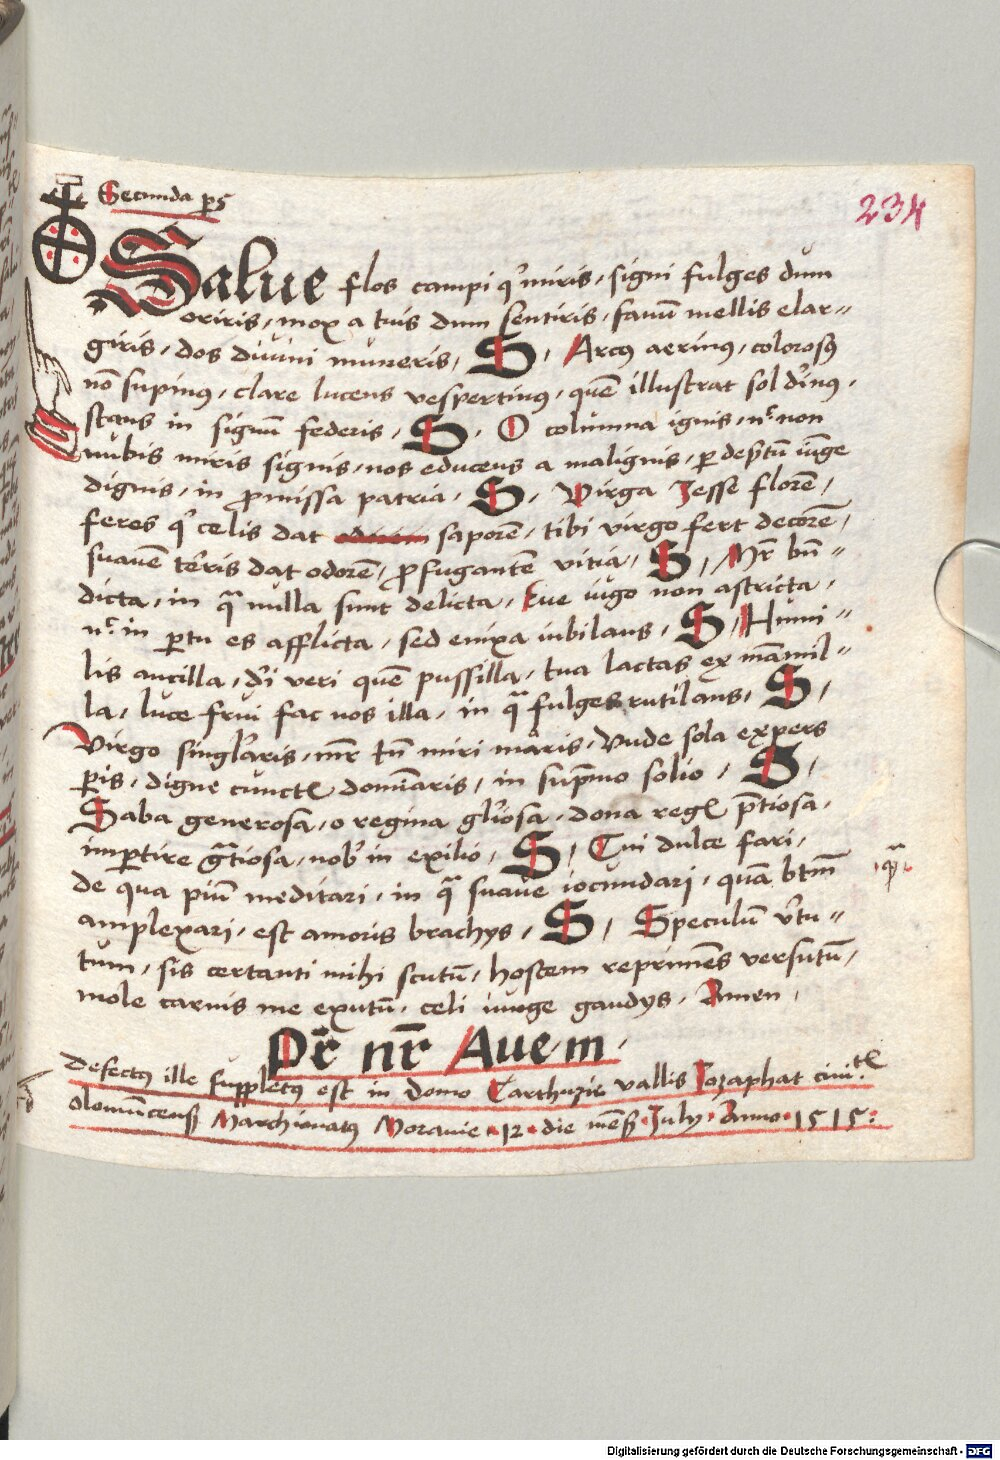 Secunda ps
234
Salue flos campi q miris, signi fulges dum
oriris, mox a tuis dum sentiris, fauū mellis elar-
giris, dos diuini muneris, S, Arcꝰ aerinꝰ, colorosꝰ
nō supinꝰ, clare lucens vespertinꝰ, quē illustrat sol diuinꝰ,
stans in signū federis, S, O columna ignis, nc non
nubis miris signis, nos educens a malignis, per iūge
dignis, in ꝓmissa patria, S, Virga Jesse florē,
feres q celis dat saporē, tibi virgo fert decorē,
suauē terris dat odorē, ꝓfugantē vitia, S, Mr bn̄-
dicta, in qa nulla sunt delicta, Eue iugo non astricta,
nc in ꝑtu es afflicta, sed enixa iubilans, S, Humi-
lis ancilla, dei veri quē pussilla, tua lactas ex māmil-
la, luce frui fac nos illa, in qa fulges rutilans, S,
Virgo singlaris, mr tn̄ miri maris, Vnde sola expers
ꝑis, digne cunctꝭ domīaris, in supmo solio, S,
Saba generosa, o regina gliosa, dona regꝭ ptiosa,
imꝑtire gratiosa, nob in exilio, S, Cui dulce fari,
de qua piū meditari, in qa suaue iocundari, quā btm̄
qa
amplexari, est amoris brachys, S, Speculū vrtu-
tum, sis certanti mihi scutū, hostem reprimēs versutū,
mole carnis me exutū, celi iunge gaudys, Amen,
Pr nr Aue m,
Defectꝰ ille suppletꝰ est in domo Carthuzie vallis Jozaphat ciuitꝭ
olomūcensꝭ Marchionatꝰ Morauie 12 die mēsꝭ July Anno 1515:
Digitalisierung gefördert durch die Deutsche Forschungsgemeinschaft - DFG